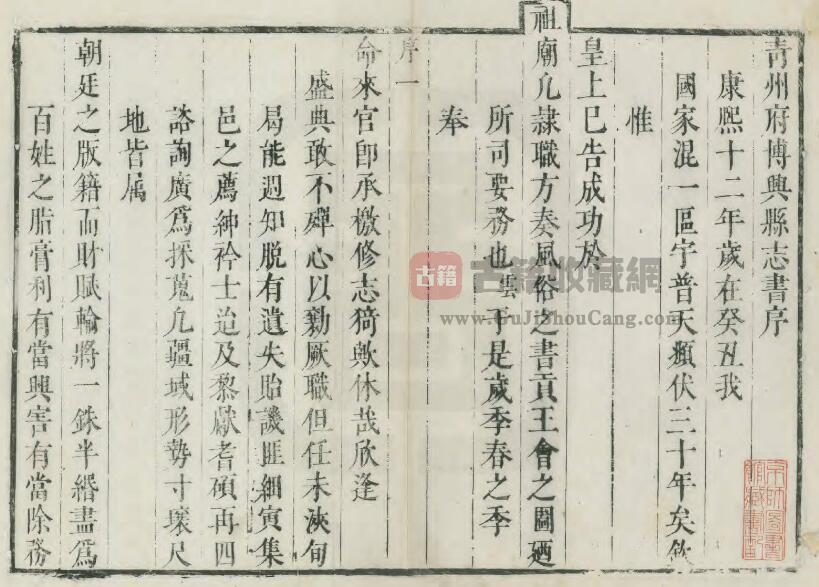 青州府博興縣志書序
康熙十二年歲在癸丑我
國家混一區宇普天頫伏三十年矣欽
惟
皇上已告成功於
祖廟凢隷職方奏風俗之書貢王會之圖廼
所司要務也雲于是歲季春之季
奉
序一
命來官卽承檄修志猗歟休哉欣逢
盛典敢不殫心以勷厥職但任未浹旬
曷能週知脫有遺失貽譏匪細寅集
邑之薦紳衿士迨及黎獻耆碩再四
諮詢廣爲採蒐凢疆域形勢寸壤尺
地皆属
朝廷之版籍而財賦輸將一銖半緡盡爲
百姓之脂膏利有當興害有當除務
古籍
古籍收藏網
www.GuJiShouCang.com
京師圖書
館藏書記